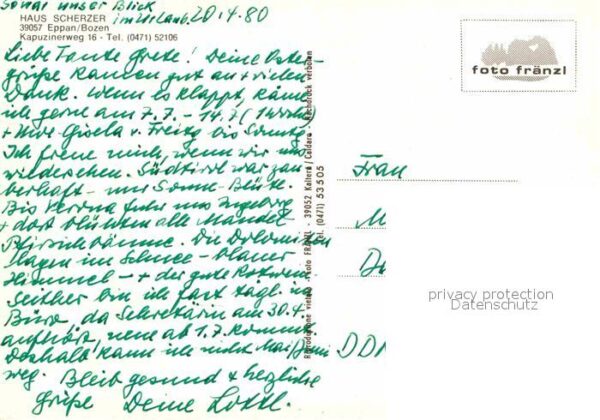 Sonne unser Blick
im Urlaub. 20.4.80
HAUS SCHERZER
39057 Eppan/Bozen
Kapuzinerweg 16 - Tel. (0471) 52106
Liebe Tante Grete! Deine Oster-
grüße kamen gut an + vielen
Dank. Wenn es klappt, käme
ich gerne am 7.7. - 14.7. (1 Woche
+ Gisela v. Freitg bis Sonntg.
Ich freue mich, wenn wir uns
wiedersehen. Südtirol war zau
berhaft - nur Sonne - Blüte.
Bis Verona fuhr uns Ingeborg
+ dort blühten alle Mandel
Pfirsichbäume. Die Dolomiten
lagen im Schnee - blauer
Himmel - + der gute Rotwein
Seither bin ich fast tägl. im
Büro da Sekretärin am 30.4.
aufhört, neue ab 1.7. kommt
Deshalb kann ich nicht Mai/Juni
weg. Bleib gesund + herzliche
Grüße Deine Lottl.
Reproduzione vietata - Foto FRÄNZL - 39052 Kaltern/Caldaro - Nachdruck verboten
Tel. (0471) 53505
foto fränzl
Frau
M
DDR
privacy protection
Datenschutz